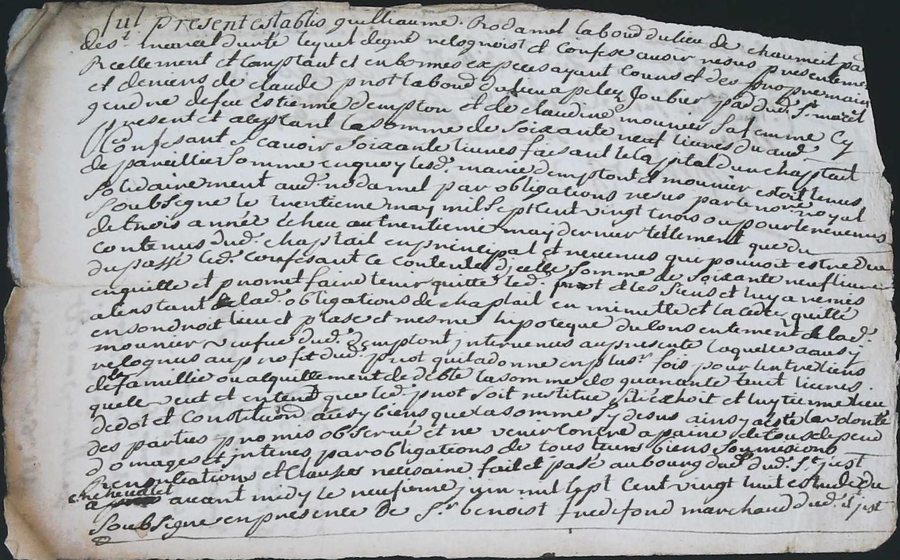 fut present establis guilliaume Rodamel laboud du lieu de chaumeit pa
de st marcel durfé lequel de gré recognoist et confese avoir resus presenteme
Reellement et comptant et en bonnes expeces ayant cours et des propre main
et deniers de claude prot laboud du lieu apelez Joubier pas dud. st marcel
gendre de feu estienne dempton et de claudine mounier sa femme Cy
present et aceptant la somme de soixante neuf livres du aud.
Confesant scavoir soixante livres faisant le Capital d'un chaptail
de pareillier somme enquoy lesd. mariés dempton et mounier estoit tenus
solidairement aud. rodamel par obligations resus par le nore royal
soubsigne le vintieme may mil sept cent vingt trois ou pour le revenus
de trois année écheu au trentieme may dernier tellement que du
contenus dud. chaptail en principal et revenus que pouvoit estre deu
du passé led. confesant ce contente d'icelle somme de soixante neuf livres
en quitte et promet faire tenir quitte led. prot et les siens et luy a remis
a l'instant lad. obligations de chaptail en minutte et la cede quitté
en son droit lieu et plase et mesme hipoteque du consentement de lad.
mounier veufue dud. dempton intervenus au presente laquelle a ausy
recognus au profit dud. prot qu'il a donné en plusr fois pour l'entretiens
de la famillie ou alquittement de debte la somme de quarante huit livres
quelle veut et entend que led. prot soit restitué s'il échoit et luy tienne lieu
de dot et Constitution ausy biens que la somme sy desus ainsy a esté accordé
des parties promis observé et ne venir contre a paine de tous depend
domages et interes par obligations de tous leurs biens soumisions
Renontiations et clauses nesesaire fait et pasé au bourg dud. st just
en chevalet avant midy le neufieme juin mil sept cent vingt huit
soubsigne en presence de sr benoist fredefond marchand dud. st just